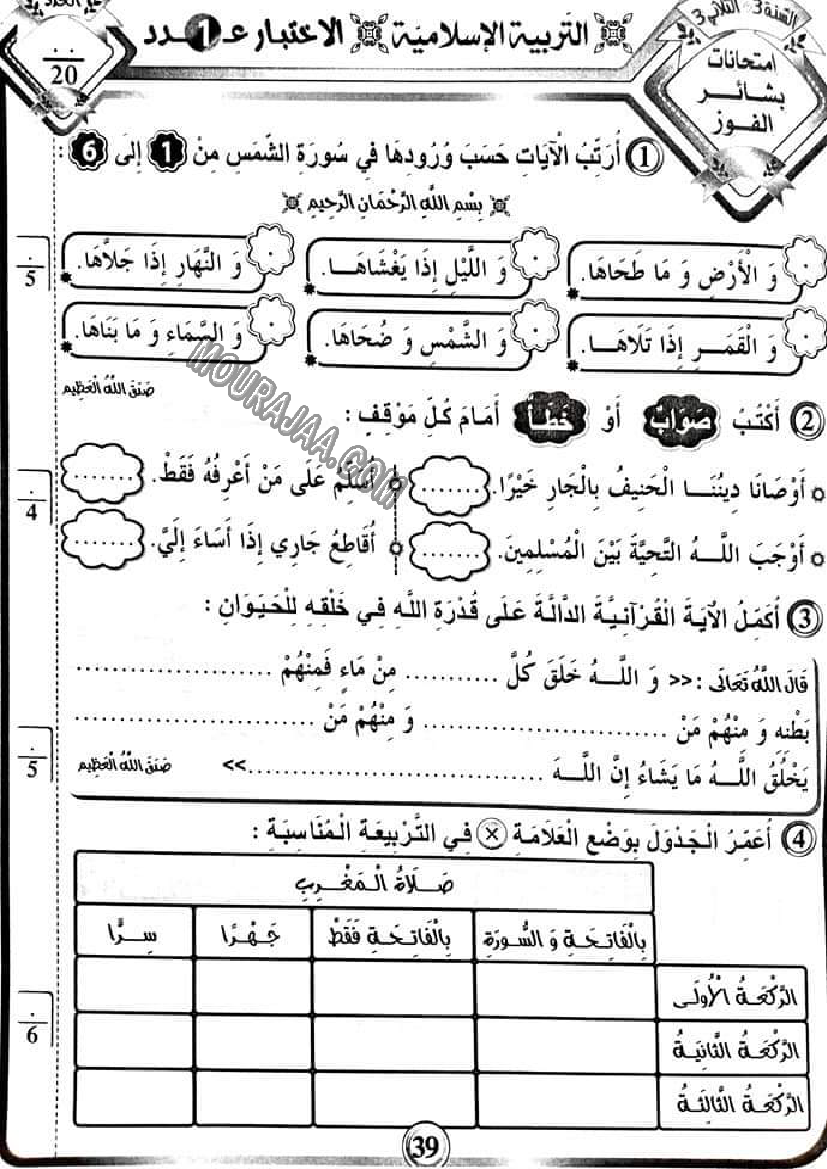 السّنة 3 - الثلاثي 3
امتحانات
بشائر
الفوز
التّربية الإسلاميّة الاختبار عـ 1 ـدد
العدد
20
① أُرَتِّبُ الْآيَاتِ حَسَبَ وُرُودِهَا فِي سُورَةِ الشَّمْسِ مِنْ 1 إِلَى 6 :
بِسْمِ اللهِ الرَّحْمَانِ الرَّحِيمِ
وَ الْأَرْضِ وَ مَا طَحَاهَا. وَ اللَّيْلِ إِذَا يَغْشَاهَـا. وَ النَّهَارِ إِذَا جَلاَّهَا.
5
وَ الْقَمَـرِ إِذَا تَلَاهَـا. وَ الشَّمْسِ وَ ضُحَاهَا. وَ السَّمَاءِ وَ مَا بَنَاهَا.
صَدَقَ اللهُ الْعَظِيم
② أَكْتُبُ صَوَابٌ أَوْ خَطَأٌ أَمَامَ كُلِّ مَوْقِفٍ :
أَوْصَانَا دِينُنَـا الْحَنِيفُ بِالْجَارِ خَيْرًا. ........ أُسَلِّمُ عَلَى مَنْ أَعْرِفُهُ فَقَطْ. ........
4
أَوْجَبَ اللَّـهُ التَّحِيَّةَ بَيْنَ الْمُسْلِمِينَ. ........ أُقَاطِعُ جَارِي إِذَا أَسَاءَ إِلَيَّ. ........
③ أُكَمِّلُ الْآيَةَ الْقُرْآنِيَّةَ الدَّالَّةَ عَلَى قُدْرَةِ اللهِ فِي خَلْقِهِ لِلْحَيَوَانِ :
قَالَ اللهُ تَعَالَى : << وَ اللَّـهُ خَلَقَ كُلَّ ........... مِنْ مَاءٍ فَمِنْهُمْ ........................
بَطْنِهِ وَ مِنْهُمْ مَنْ ............................... وَ مِنْهُمْ مَنْ ..............................
5
يَخْلُقُ اللَّـهُ مَا يَشَاءُ إِنَّ اللَّـهَ .....................................>> صَدَقَ اللهُ الْعَظِيم
④ أُعَمِّرُ الْجَدْوَلَ بِوَضْعِ الْعَلَامَةِ ⊗ فِي التَّرْبِيعَةِ الْمُنَاسِبَةِ :
صَـلَاةُ الْمَغْـرِبِ
بِالْفَاتِحَةِ وَ السُّورَةِ بِالْفَاتِحَةِ فَقَطْ جَهْرًا سِرًّا
الرَّكْعَةُ الْأُولَى
6
الرَّكْعَةُ الثَّانِيَةُ
الرَّكْعَةُ الثَّالِثَةُ
39
MOURAJAA.COM